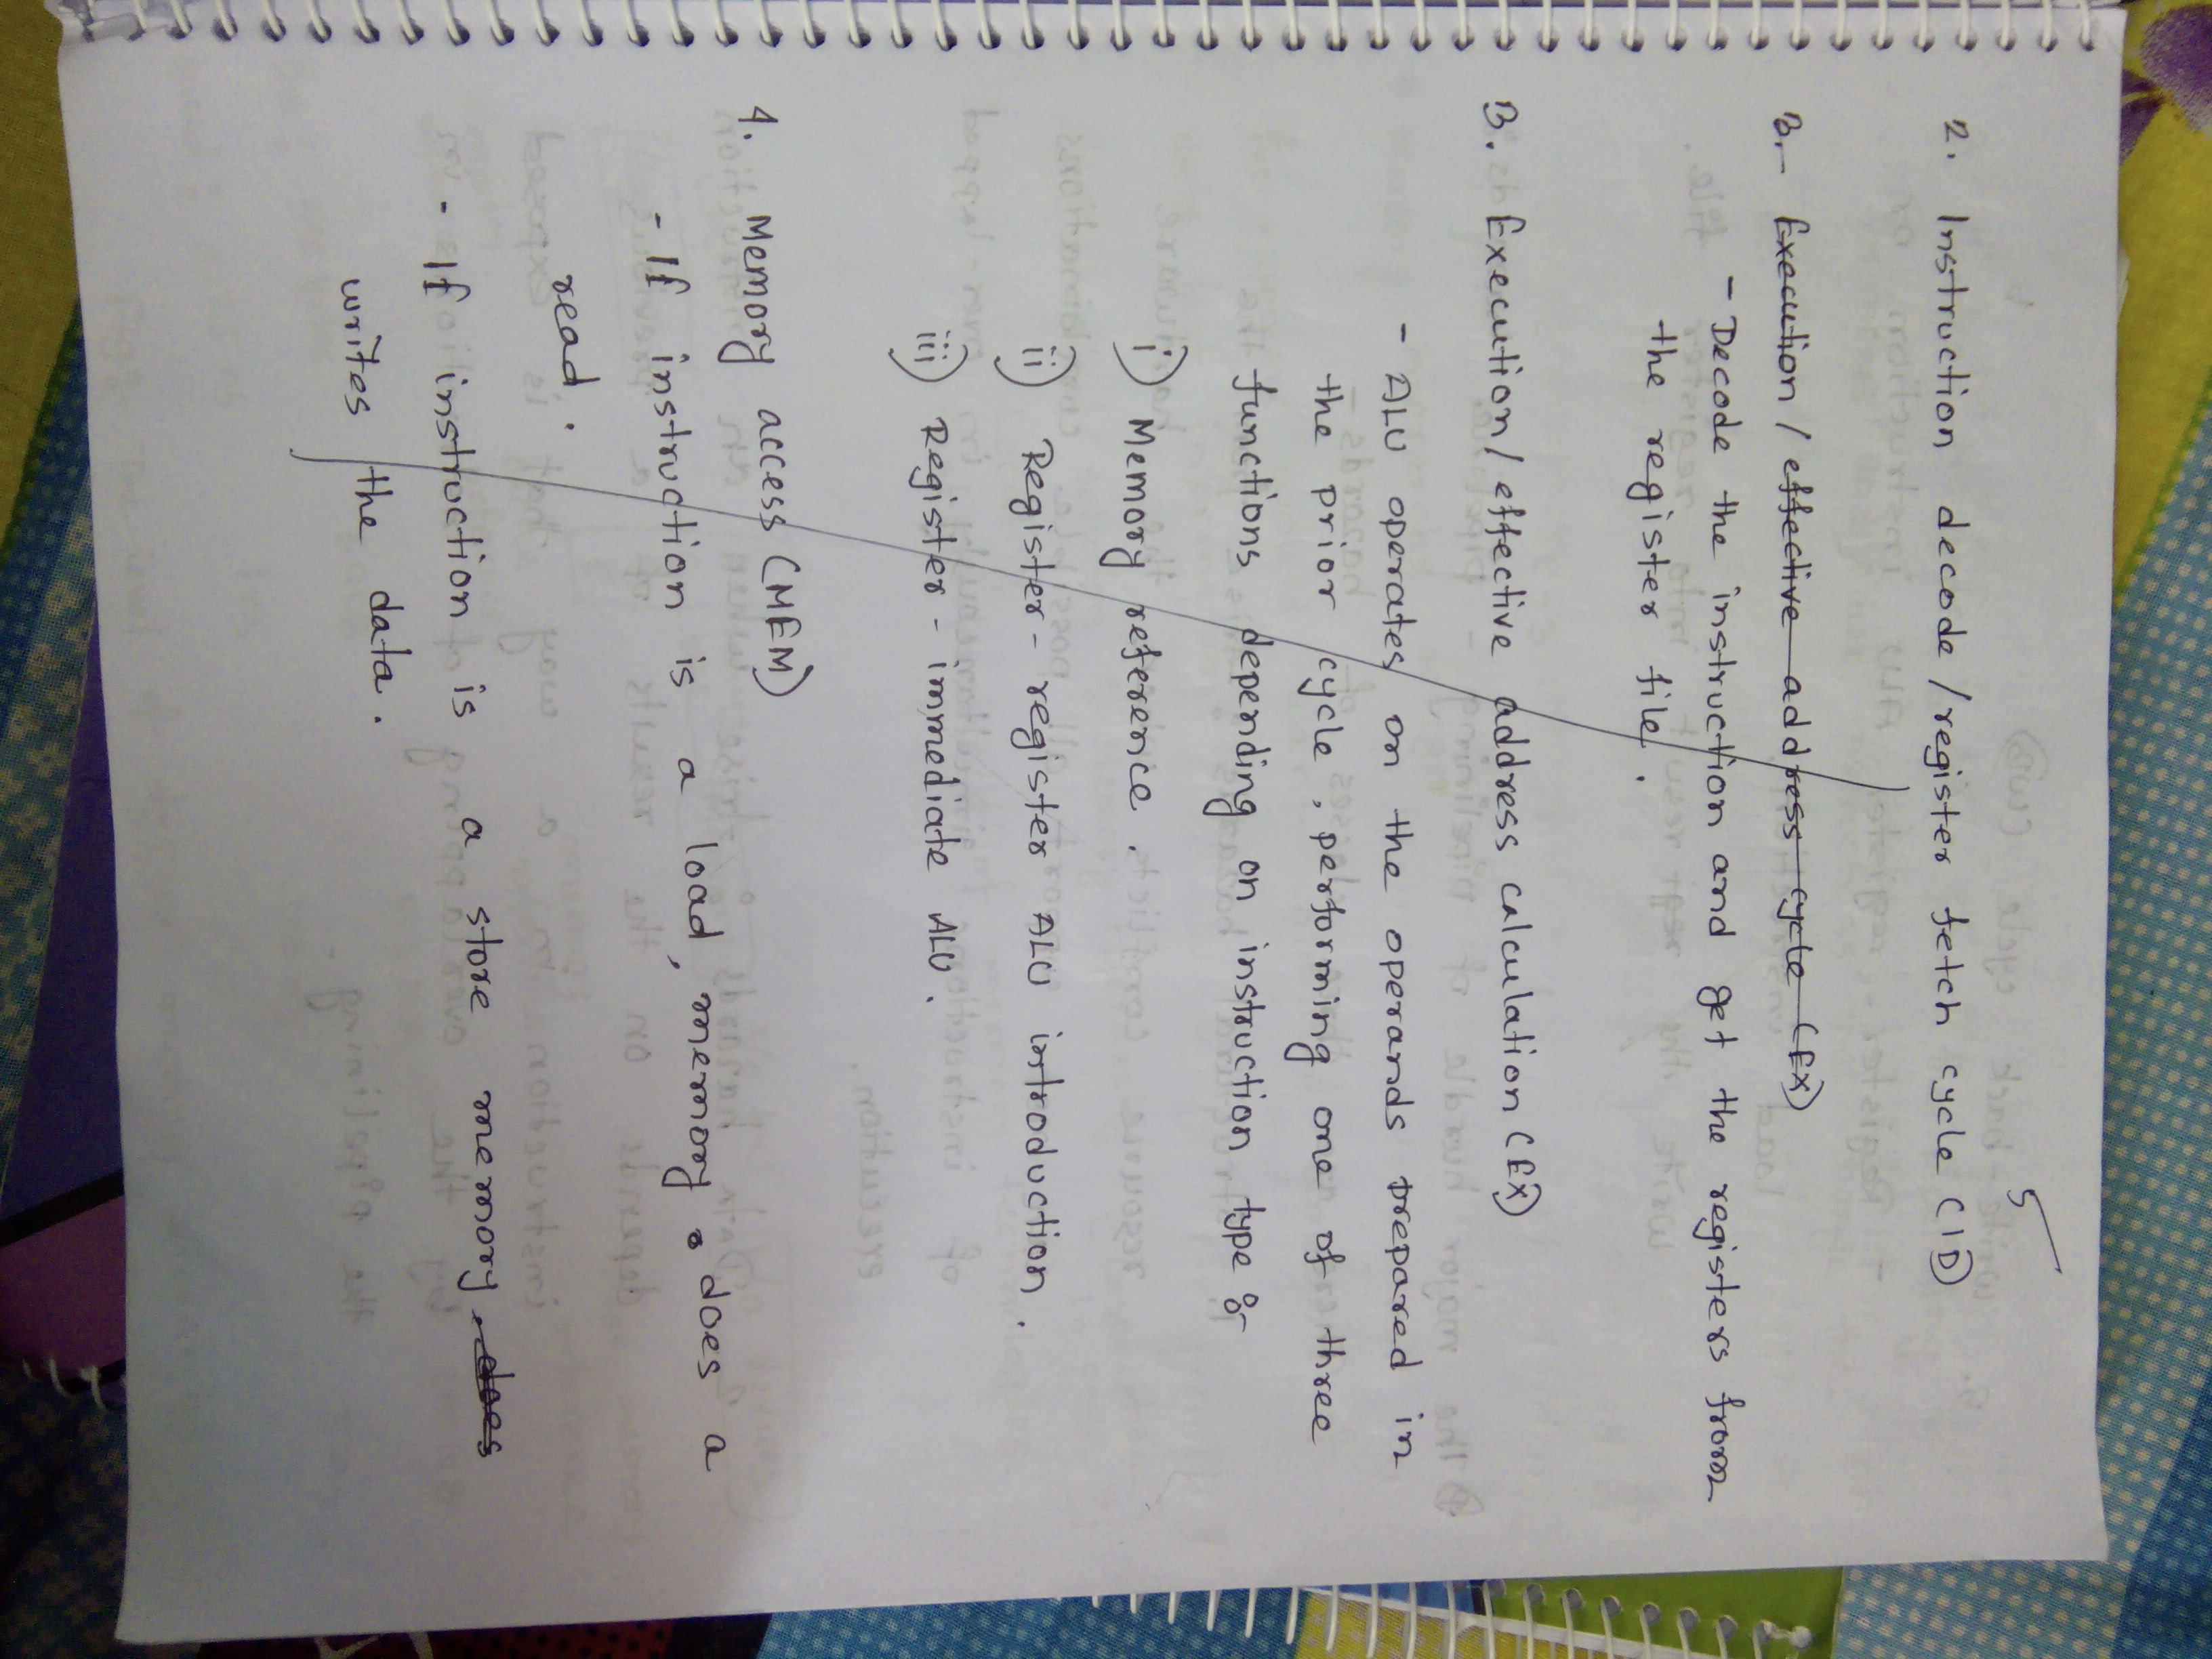 5
2. Instruction decode / register fetch cycle (ID)
3. Execution / effective address cycle (EX)
- Decode the instruction and get the registers from
the register file.
3. Execution / effective address calculation (EX)
- ALU operates on the operands prepared in
the prior cycle, performing one of three
functions depending on instruction type :-
i) Memory reference.
ii) Register - register ALU introduction.
iii) Register - immediate ALU.
4. Memory access (MEM)
- If instruction is a load, memory does a
read.
- If instruction is a store memory does
writes the data.